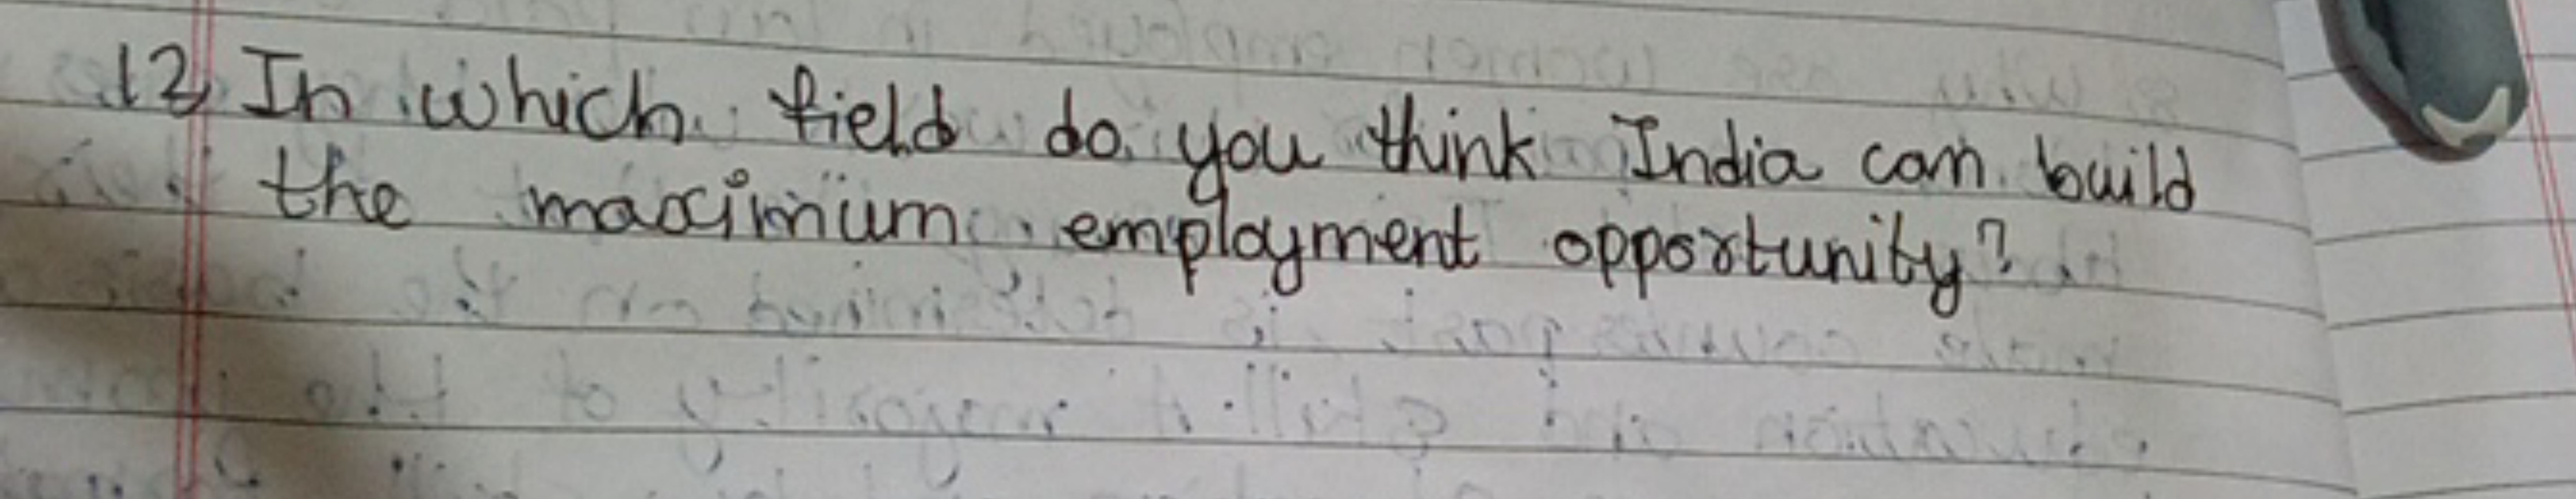 12) In which field do you think India can build
the maximum employment opportunity?